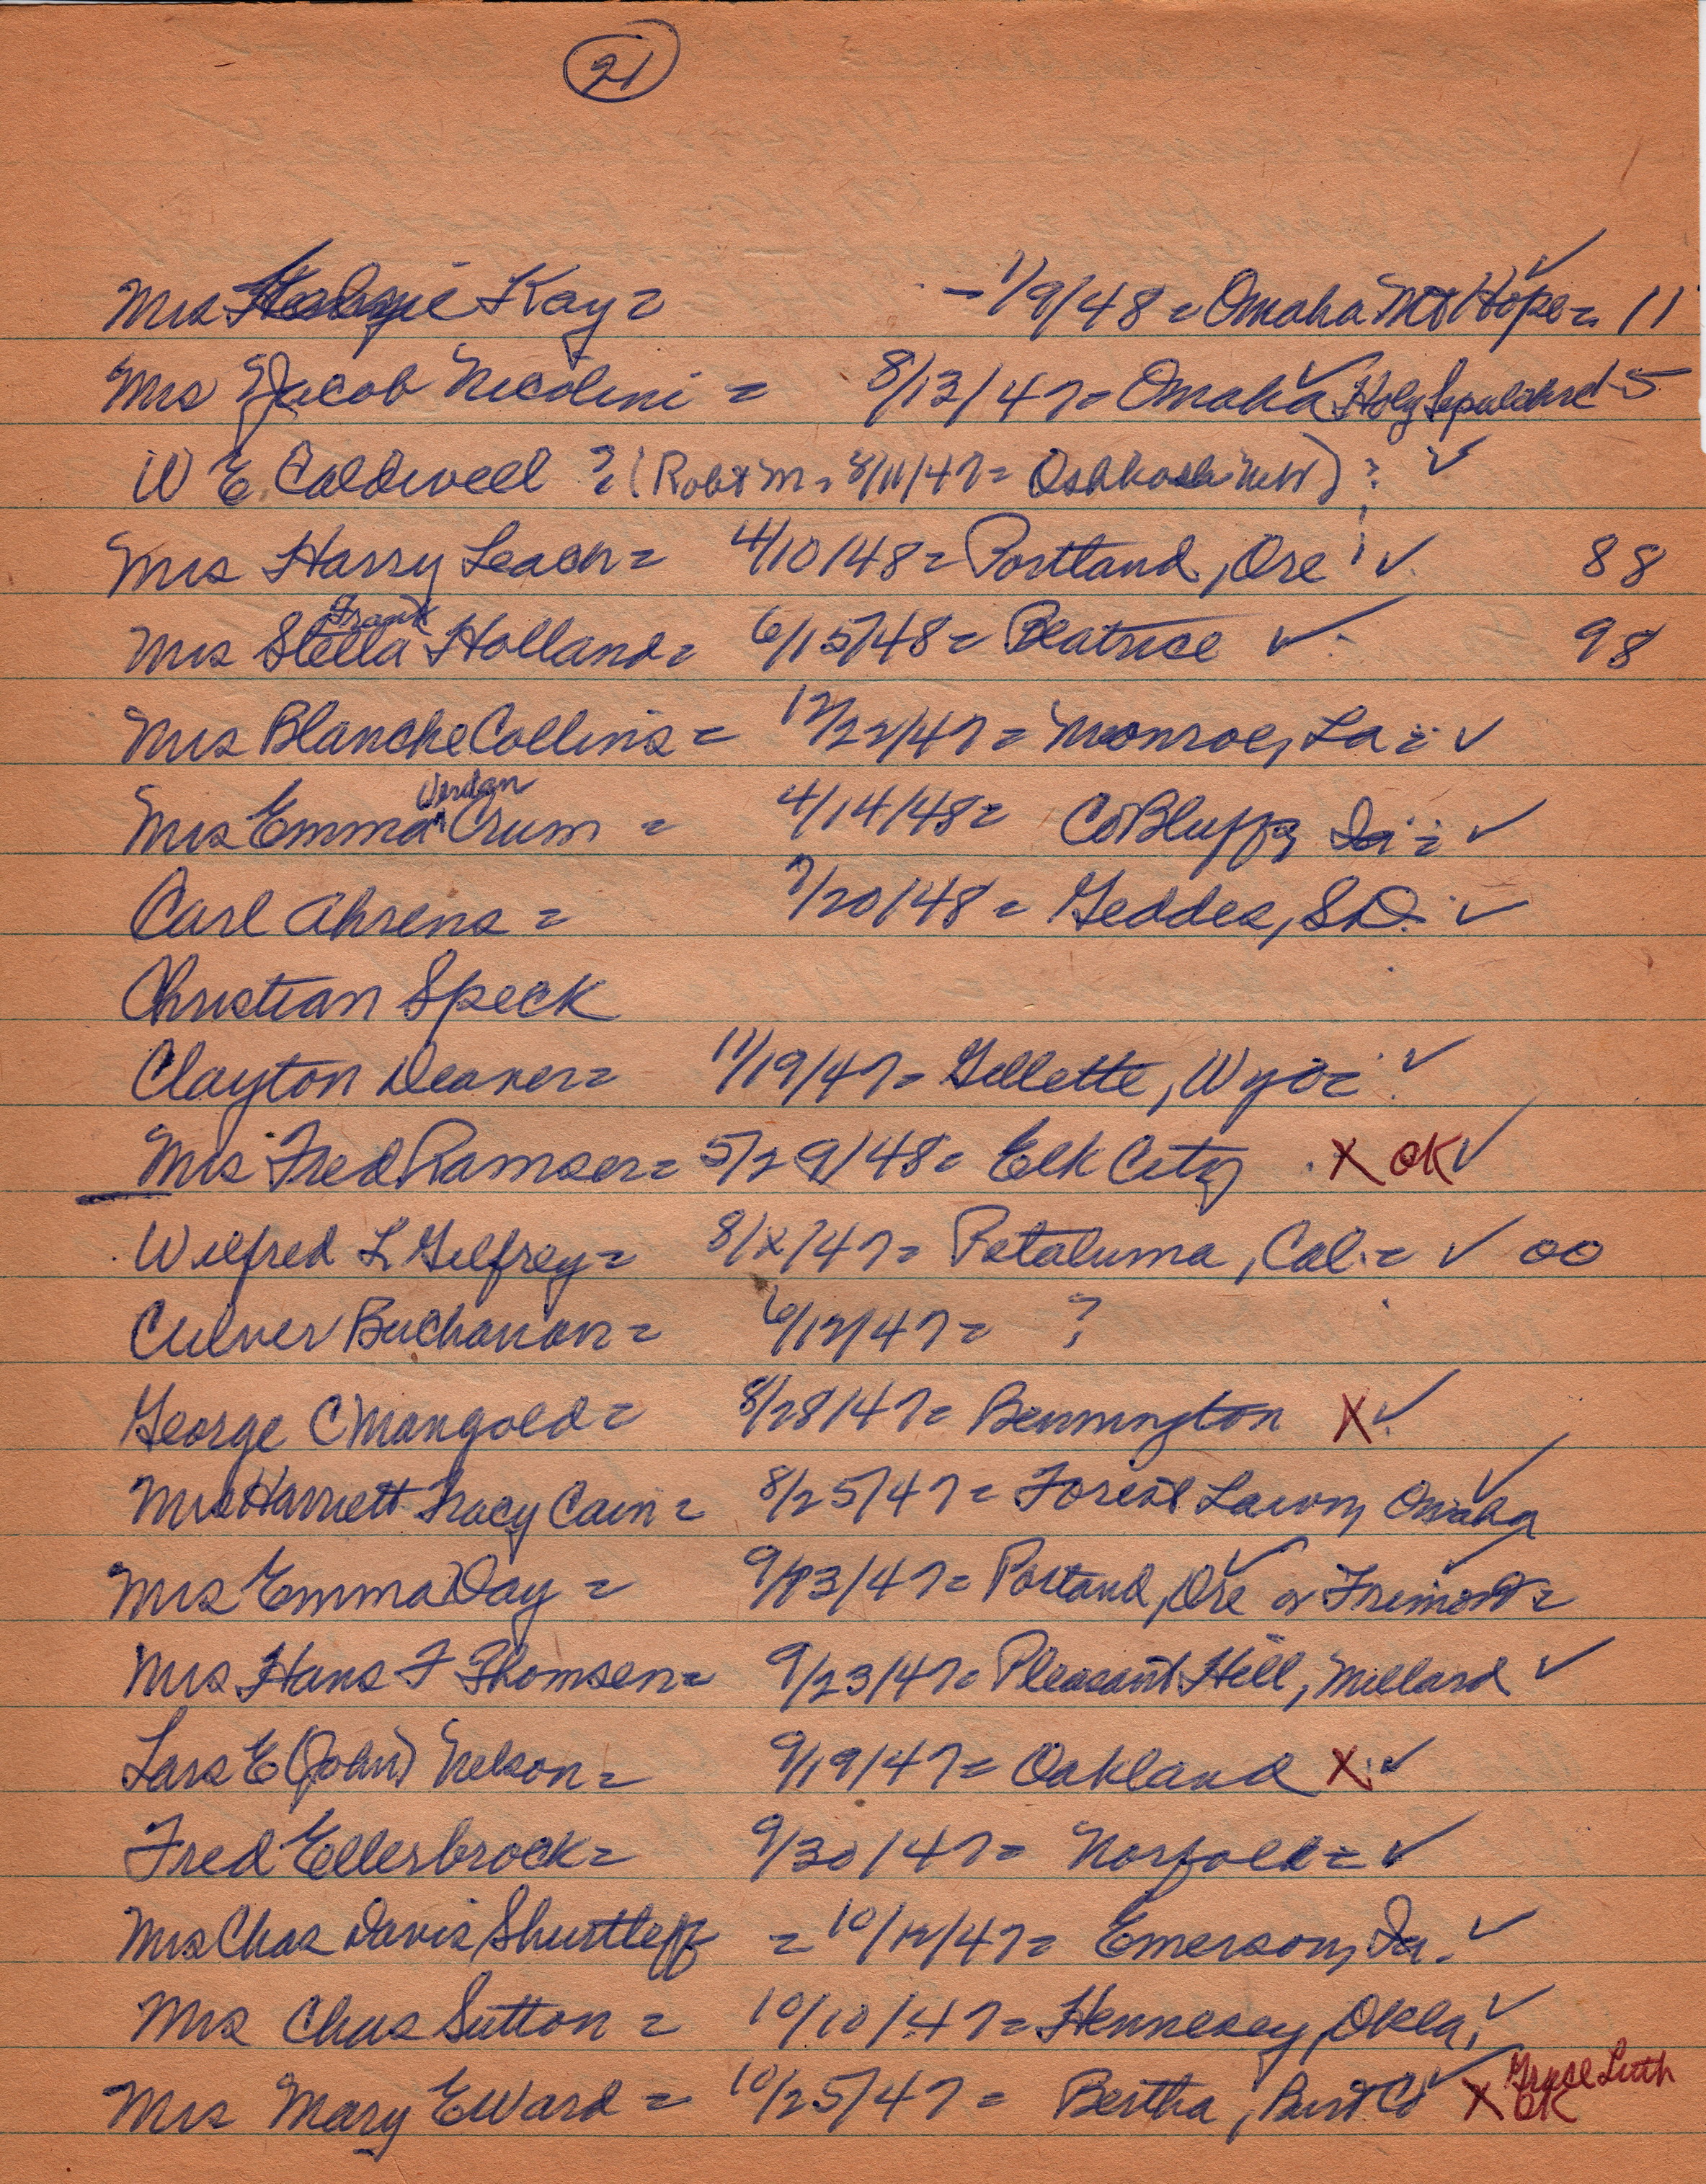 21
Mrs Kay = - 1/9/48 = Omaha Mt Hope = 11
Mrs Jacob Nicolini = 8/13/47 = Omaha Holy Sepulchre 5
W E Caldwell ? (Robt M = 8/11/47 = Oshkosh ) ? ✓
Mrs Harry Leach = 4/10/48 = Portland, Ore ✓ 88
Frank
Mrs Stella Holland = 6/15/48 = Beatrice ✓ 98
Mrs Blanche Collins = 12/22/47 = Monroe, La = ✓
Verdan
Mrs Emma ^ Crum = 4/14/48 = Co Bluffs Ia = ✓
Carl Ahrens = 7/20/48 = Geddes, S.D. ✓
Christian Speck
Clayton Deaver = 11/19/47 = Gillette, Wyo = ✓
Mrs Fred Ramser = 5/29/48 = Elk City X OK ✓
Wilfred L Gilfrey = 8/x/47 = Petaluma, Cal = ✓ 00
Culver Buchanan = 6/12/47 = ?
George C Mangold = 8/28/47 = Bennington X ✓
Mrs Harriett Tracy Cain = 8/25/47 = Forest Lawn, Omaha ✓
Mrs Emma Day = 9/13/47 = Portland, Ore ✓ or Fremont = ✓
Mrs Hans F Thomsen = 9/23/47 = Pleasant Hill, Millard ✓
Lars E (John) Nelson = 9/19/47 = Oakland X ✓
Fred Ellerbrock = 9/30/47 = Norfolk = ✓
Mrs Chas Davis Shurtleff = 10/12/47 = Emerson, Ia. ✓
Mrs Chas Sutton = 10/10/47 = Hennesey, Okla ✓
Grace Luth
Mrs Mary E Ward = 10/25/47 = Bertha, Burt Co ✓ X OK